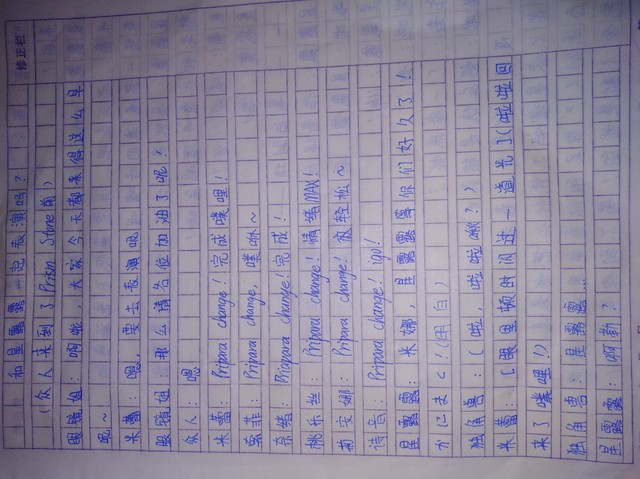 修正栏
和星露露一起表演吗？
（众人来到了Prism Stone前）
眼镜姐：啊啦，大家今天都来得这么早
呢～
米蕾：嗯，要去表演呢
眼镜姐：那么请各位加油了呢！
众人：嗯
米蕾：Pripara change！完成噗哩！
索菲：Pripara change，噗咻～
奈绪：Priapara change！完成！
桃乐丝：Pripara change！情绪MAX！
莉安娜：Pripara change！很轻松～
诗音：Pripara change！igo！
星露露：米娜，星露露等你们好久了！
かにまく！(闲白）
独角兽：（啦，啦啦啦？）
米蕾：［眼里顿时闪过一道光］（啦啦回
来了噗哩！）
独角兽：星露露…
星露露：啊勒？